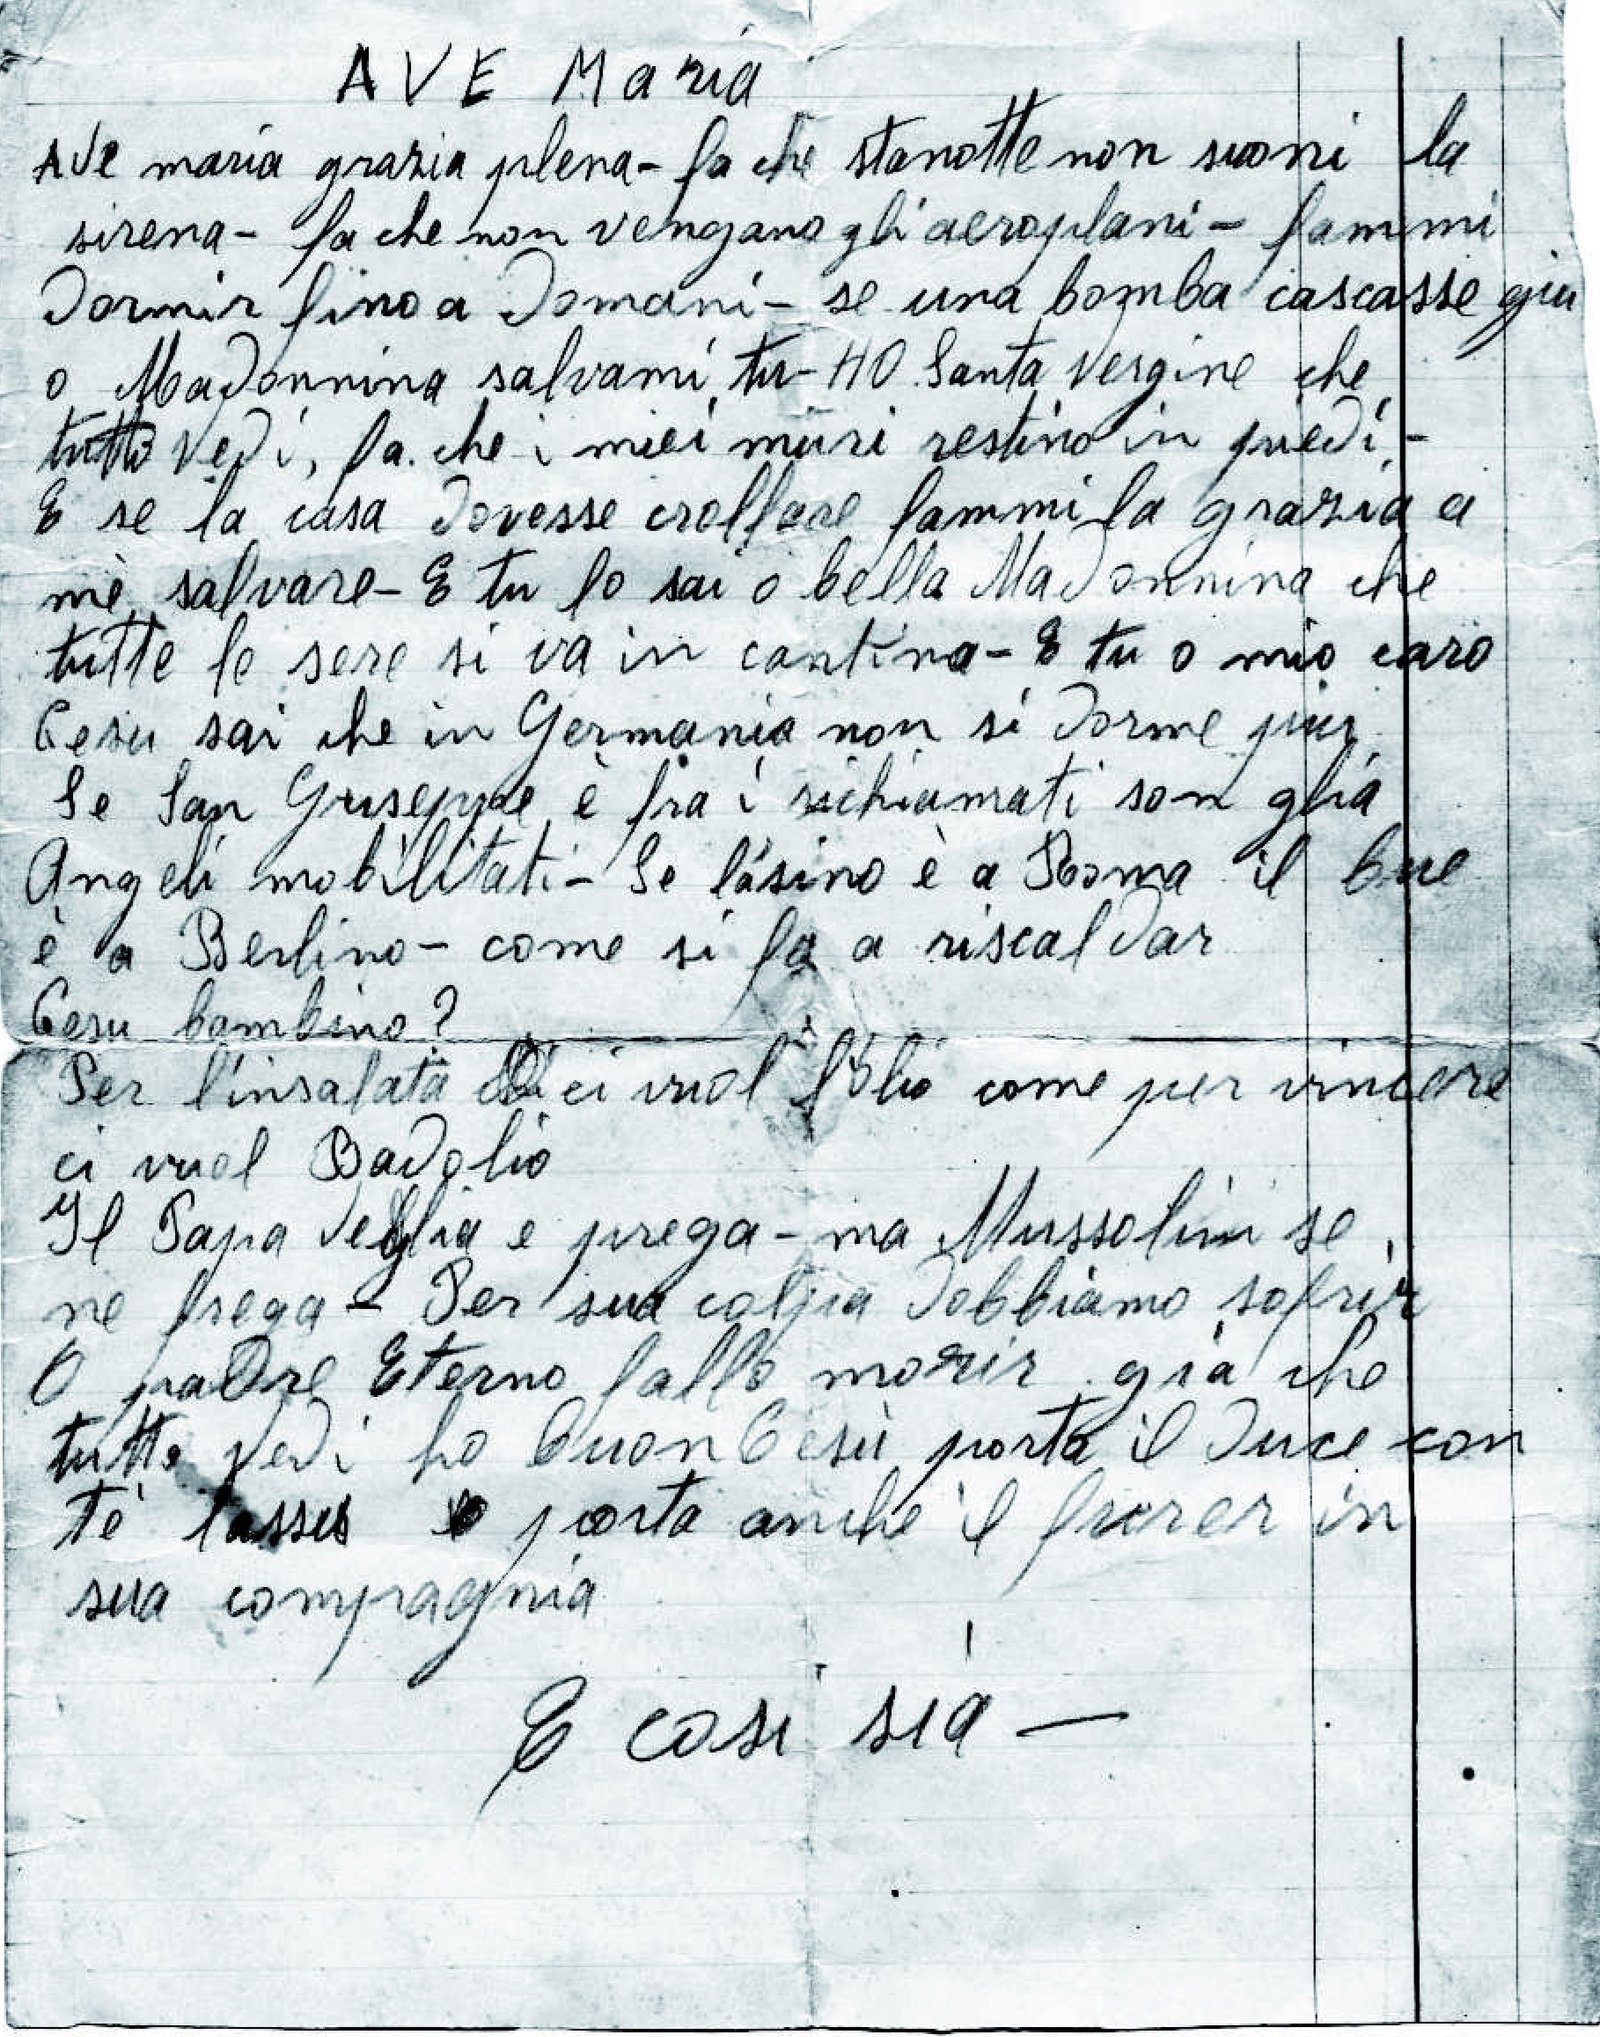 AVE Maria
AVe maria grazia plena - fa che stanotte non suoni la
sirena - fa che non vengano gli aeroplani - fammi
Dormir fino a Domani - se una bomba cascasse giu
o Madonnina salvami tu - HO Santa Vergine che
tutto Vedi, fa che i miei muri restino in piedi -
E se la casa Dovesse crollare fammi la grazia a
mè salvare - E tu lo sai o bella MaDonnina che
tutte le sere si va in cantina - E tu o mio caro
Gesu sai che in Germania non si Dorme piu
Se San Giuseppe è fra i richiamati son glia
Angeli mobilitati - Se l'asino è a Roma il bue
è a Berlino - come si fa a riscalDar
Gesu bambino?
Per l'insalata ci vuol l'olio come per vincere
ci vuol BaDolio
Il Papa Veglia e prega - ma Mussolini se
ne frega - Per sua colpa Dobbiamo sofrir
O paDre Eterno fallo morir già che
tutto VeDi ho buon Gesù porta il Duce con
tè porta anche il furer in
sua compagnia
E cosi sia —